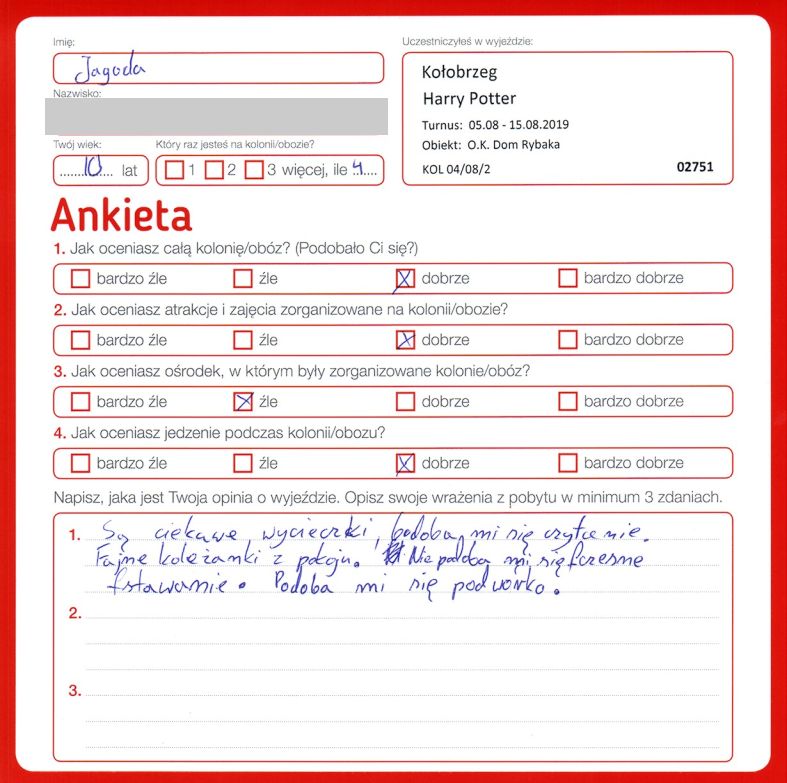 Imię:
Jagoda
Nazwisko:
Twój wiek:
10 lat
Który raz jesteś na kolonii/obozie?
1 2 3 więcej, ile 4
Uczestniczyłeś w wyjeździe:
Kołobrzeg
Harry Potter
Turnus: 05.08 - 15.08.2019
Obiekt: O.K. Dom Rybaka
KOL 04/08/2 02751
Ankieta
1. Jak oceniasz całą kolonię/obóz? (Podobało Ci się?)
bardzo źle źle dobrze bardzo dobrze
2. Jak oceniasz atrakcje i zajęcia zorganizowane na kolonii/obozie?
bardzo źle źle dobrze bardzo dobrze
3. Jak oceniasz ośrodek, w którym były zorganizowane kolonie/obóz?
bardzo źle źle dobrze bardzo dobrze
4. Jak oceniasz jedzenie podczas kolonii/obozu?
bardzo źle źle dobrze bardzo dobrze
Napisz, jaka jest Twoja opinia o wyjeździe. Opisz swoje wrażenia z pobytu w minimum 3 zdaniach.
1. Są ciekawe wycieczki, podoba mi się czytanie.
Fajne koleżanki z pokoju. Nie podoba mi się fczesne
fstawanie. Podoba mi się podwórko.
2.
3.